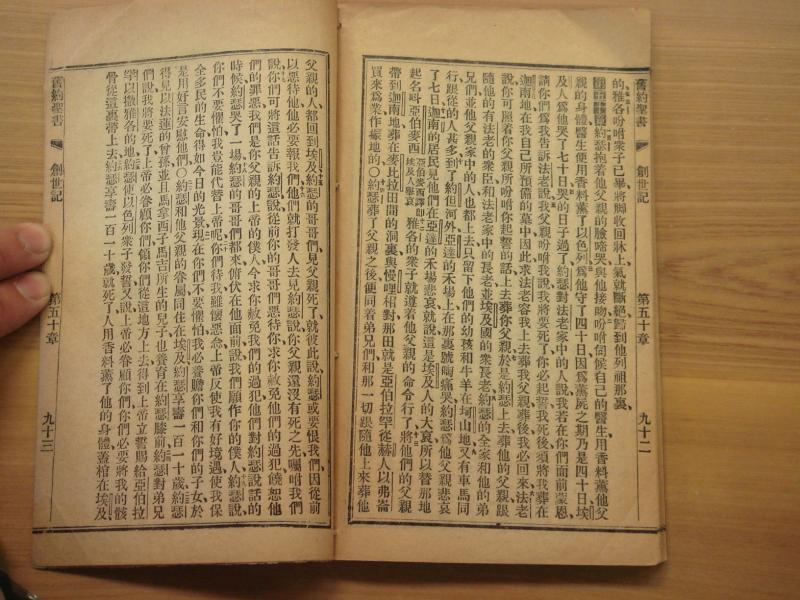 舊約聖書
創世記
第五十章
九十二
的雅各吩咐衆子已畢將脚收回牀上氣就斷絕歸到他列祖那裏
約瑟抱着他父親的臉啼哭與他接吻吩咐伺候自己的醫生用香料薰他父
親的身體醫生便用香料薰了以色列爲他守了四十日因爲薰屍之期乃是四十日埃
及人爲他哭了七十日哭的日子過了約瑟對法老家中的人說我若在你們面前蒙恩
請你們爲我告訴法老說我父親吩咐我說我將要死了你必起誓我死後須將我葬在
迦南地在我自己所預備的墓中因此求法老容我上去葬我父親葬後我必回來法老
說你可照着你父親所吩咐你起誓的話上去葬你父親於是約瑟上去葬他的父親跟
隨他的有法老的衆臣和法老家中的長老並埃及國的衆長老約瑟的全家和他的弟
兄們並他父親家中的人也都上去只留下他們的幼孩和牛羊在坷山地又有車馬同
行跟從的人甚多到了約但河外亞達的禾場上在那裏號啕痛哭約瑟爲他父親悲哀
了七日迦南的居民見他們在亞達的禾場悲哀就說這是埃及人的大哀所以替那地
起名呌亞伯麥西亞伯麥西譯卽埃及人舉哀雅各的衆子就遵着他父親的命令行了將他們的父親
帶到迦南地葬在麥比拉田間的洞裏與慢哩相對那田就是亞伯拉罕從赫人以弗崙
買來爲業作墳地的○約瑟葬了父親之後便同着弟兄們和那一切跟隨他上來葬他
父親的人都回到埃及約瑟的哥哥們見父親死了就彼此說約瑟或要恨我們因從前
以惡待他他必要報我們他們就打發人去見約瑟說你父親還沒有死之先囑咐我們
說你們可將這話告訴約瑟說從前你的哥哥們惡待你求你赦免他們的過犯饒恕他
們的罪惡我們是你父親的上帝的僕人今求你赦免我們的過犯他們對約瑟說話的
時候約瑟哭了一場約瑟的哥哥們都來俯伏在他面前說我們願作你的僕人約瑟說
你們不要懼怕我豈能代替上帝呢你們待我雖懷惡念上帝反使我有好境遇使我保
全多民的生命得如今日的光景現在你們不要懼怕我必養贍你們和你們的子女於
是用好言安慰他們○約瑟和他父親的眷屬同住在埃及約瑟享壽一百一十歲約瑟
得見以法蓮的曾孫並且馬拿西子馬吉所生的兒子也養育在約瑟膝前約瑟對弟兄
們說我將要死了上帝必眷顧你們領你們從這地方上去得到上帝立誓賜給亞伯拉
罕以撒雅各的地約瑟使以色列衆子發誓又說上帝必眷顧你們你們必要將我的骸
骨從這裏帶上去約瑟享壽一百一十歲就死了人用香料薰了他的身體蓋棺在埃及
舊約聖書
創世記
第五十章
九十三